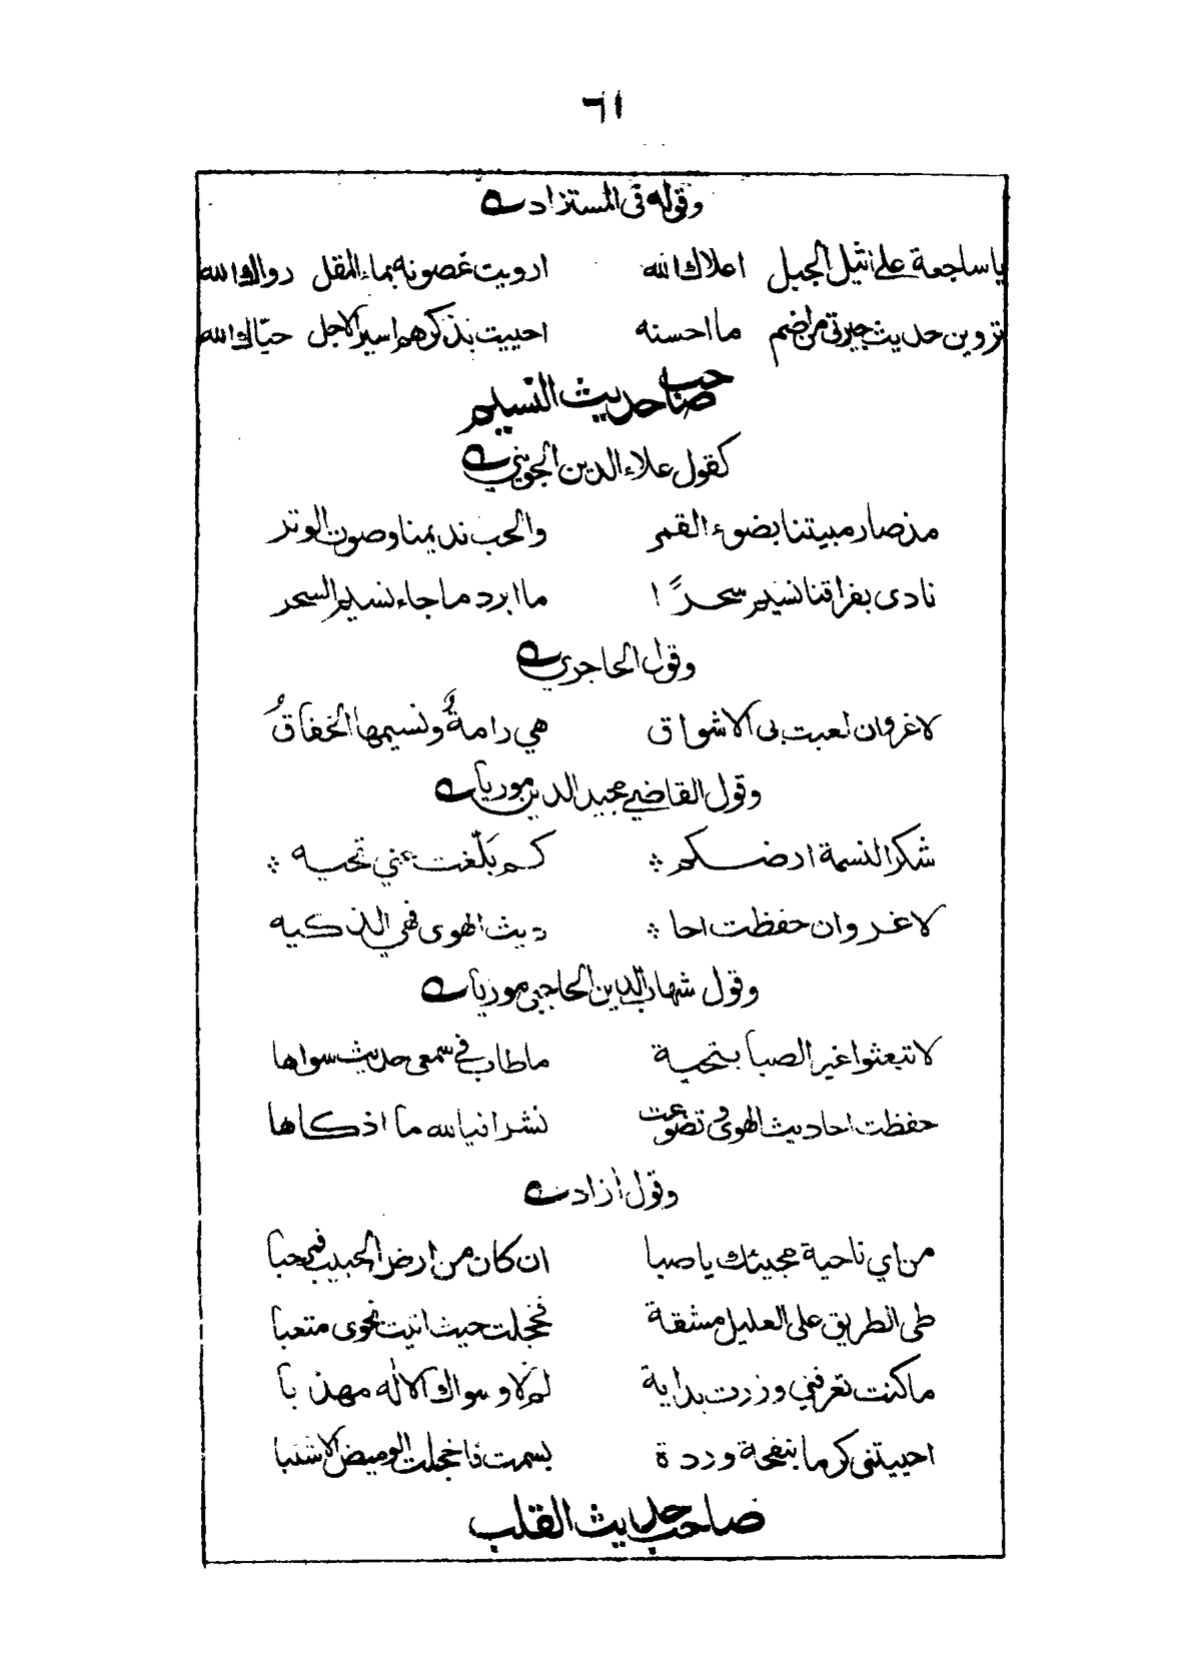 ٦١
وقوله في المستزاد
يا ساجعة على اثيل الجبل اعلاك الله ارويت غصونه بماء المقل رواك الله
تروين حديث جيرتي من اضم ما احسنه احييت بذكرهم اسير الاجل حيّاك الله
صاحب حديث النسيم
كقول علاء الدين الجويني
مذصار مبيتنا بضوء القمر والحب نديمنا وصوت الوتر
نادى بفراقنا نسيم سحرًا ما ابرد ما جاء نسيم السحر
وقول الحاجري
لا غرو ان لعبت بى الاشواق هي رامةٌ ونسيمها الخفاقُ
وقول القاضي مجيد الدين موريا
شكرا لنسمة ارضكم ؞ كم بلّغت عني تحيه ؞
لا غرو ان حفظت احا ؞ ديث الهوى فهي الذكيه
وقول شهاب الدين الحاجبي موريا
لا تبعثوا غير الصبا بتحية ما طاب في سمعي حديث سواها
حفظت احاديث الهوى وتضوعت نشرا فيالله ما اذكاها
وقول ازاد
من اي ناحية مجيئك يا صبا ان كان من ارض الحبيب فمرحبا
طى الطريق على العليل مشقة فخجلت حيث اتيت نحوى متعبا
ما كنت تعرفني وزرت بداية لم لا وسواك الاله مهذبا
احييتنى كرما بنفحة وردة بسمت فاخجلت الوميض الاشنبا
صاحب حديث القلب